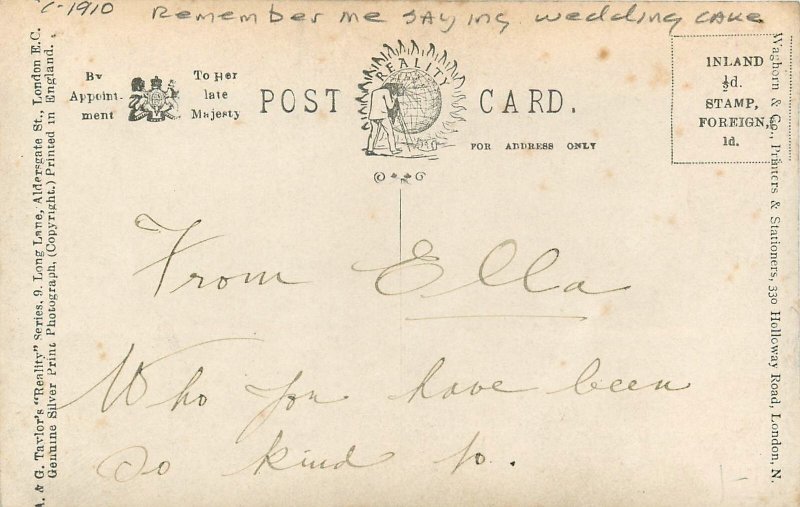 C-1910 Remember me saying wedding cake
By Appoint-ment
To Her late Majesty
POST CARD.
REALITY
FOR ADDRESS ONLY
INLAND
½d.
STAMP,
FOREIGN,
1d.
From Ella
Who you have been
So kind to.
A. & G. Taylor's "Reality" Series, 9. Long Lane, Aldersgate St., London E.C.
Genuine Silver Print Photograph, (Copyright.) Printed in England.
Waghorn & Co., Printers & Stationers, 330 Holloway Road, London, N.